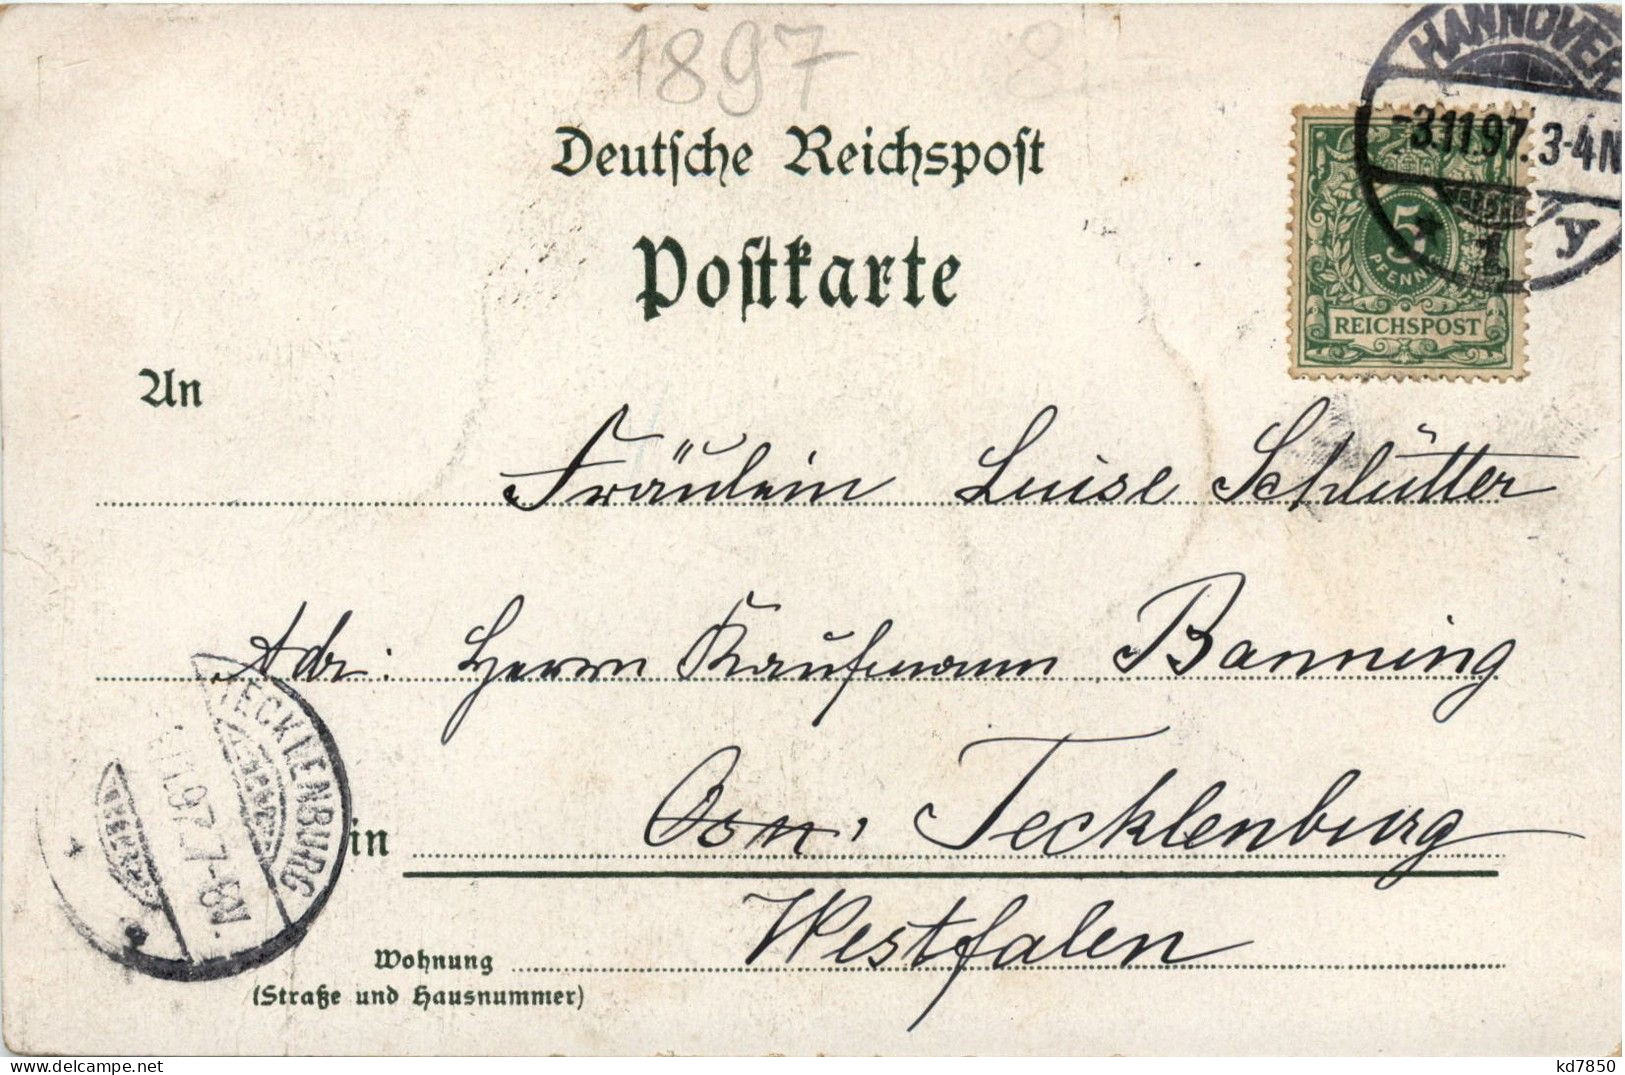 1897
8.-
HANNOVER
-3.11.97. 3-4N
1 y
5
PFENNIG
REICHSPOST
Deutsche Reichspost
Postkarte
An
Fräulein Luise Schlütter
Adr: Herrn Kaufmann Banning
TECKLENBURG
in Osn. Tecklenburg
Westfalen
Wohnung
(Straße und Hausnummer)
kd7850